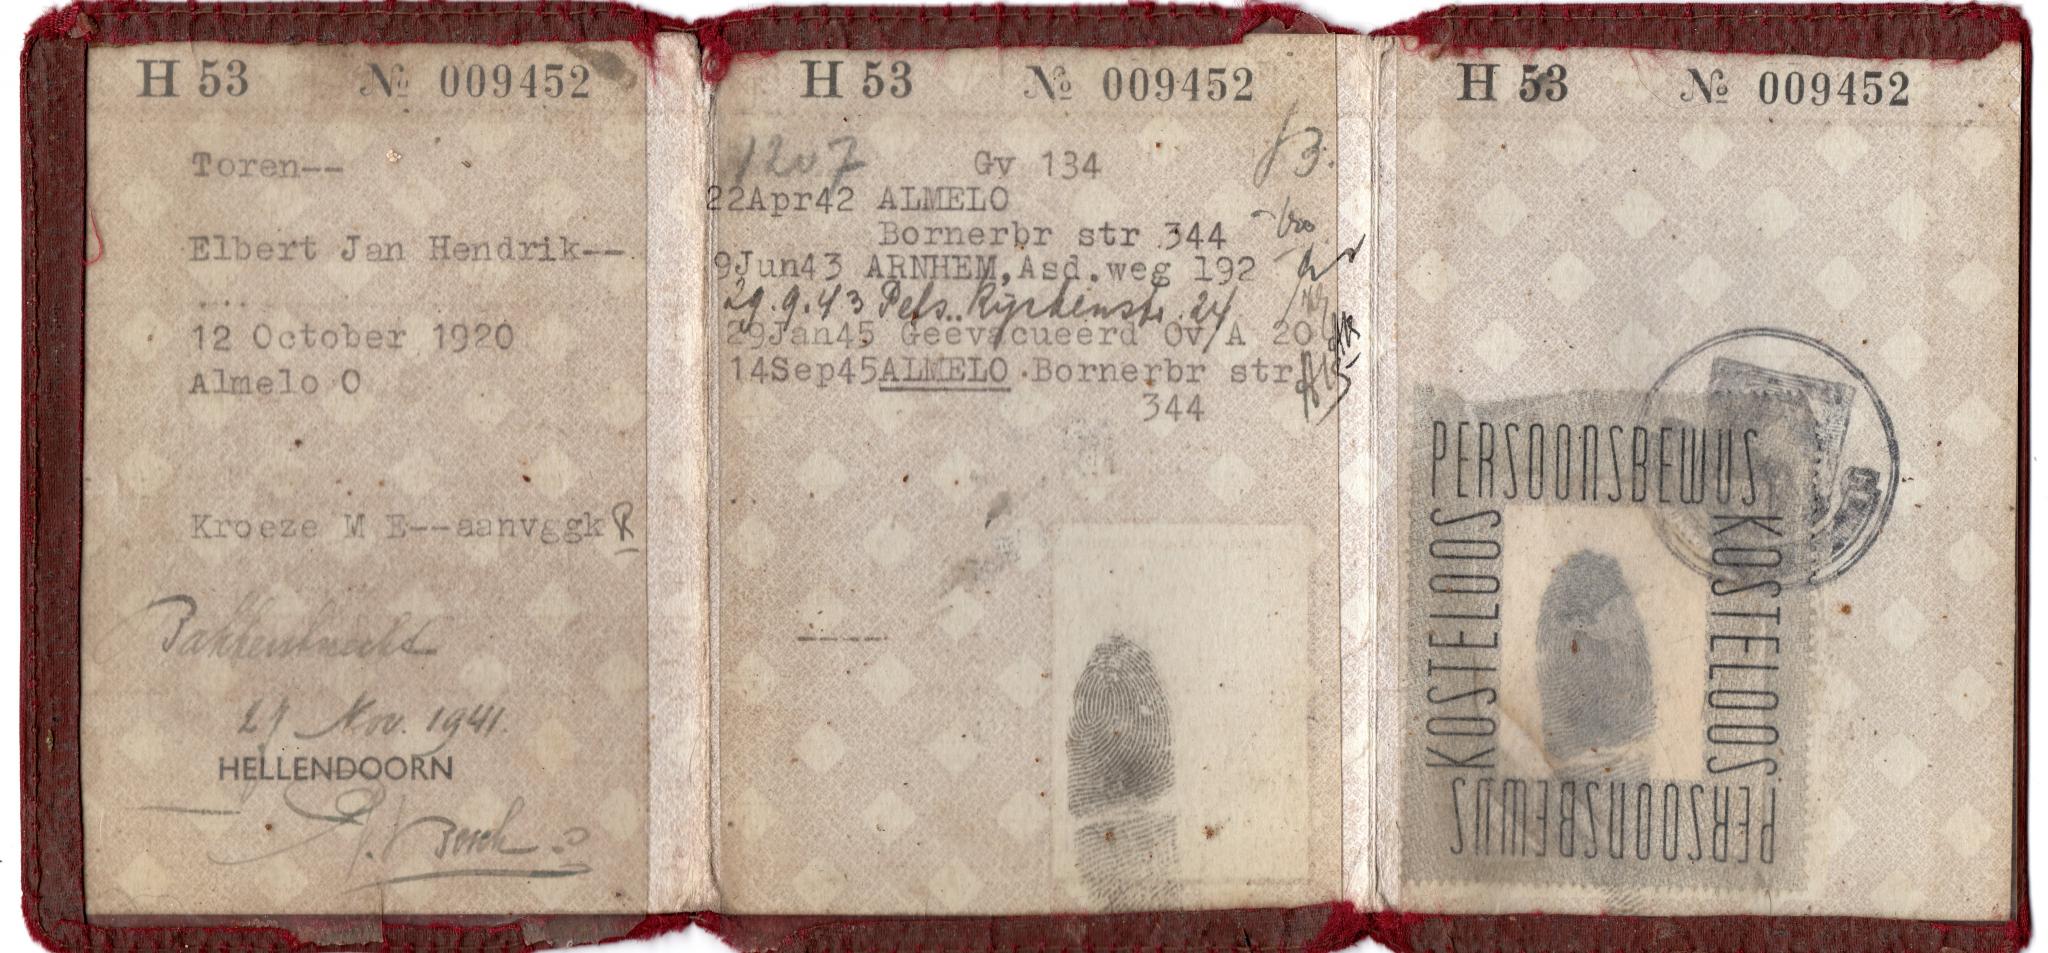 H 53 № 009452
Toren--
Elbert Jan Hendrik--
12 October 1920
Almelo O
Kroeze M E--aanvggk R
Bakkersknecht
27 Nov. 1941.
HELLENDOORN
Bosch
H 53 № 009452
Gv 134
22Apr42 ALMELO
Bornerbr str 344
9Jun43 ARNHEM, Asd.weg 192
29.9.43
24
29Jan45 Geevacueerd Ov/A 20
14Sep45 ALMELO Bornerbr str
344
H 53 № 009452
PERSOONSBEWIJS
KOSTELOOS
KOSTELOOS
PERSOONSBEWIJS